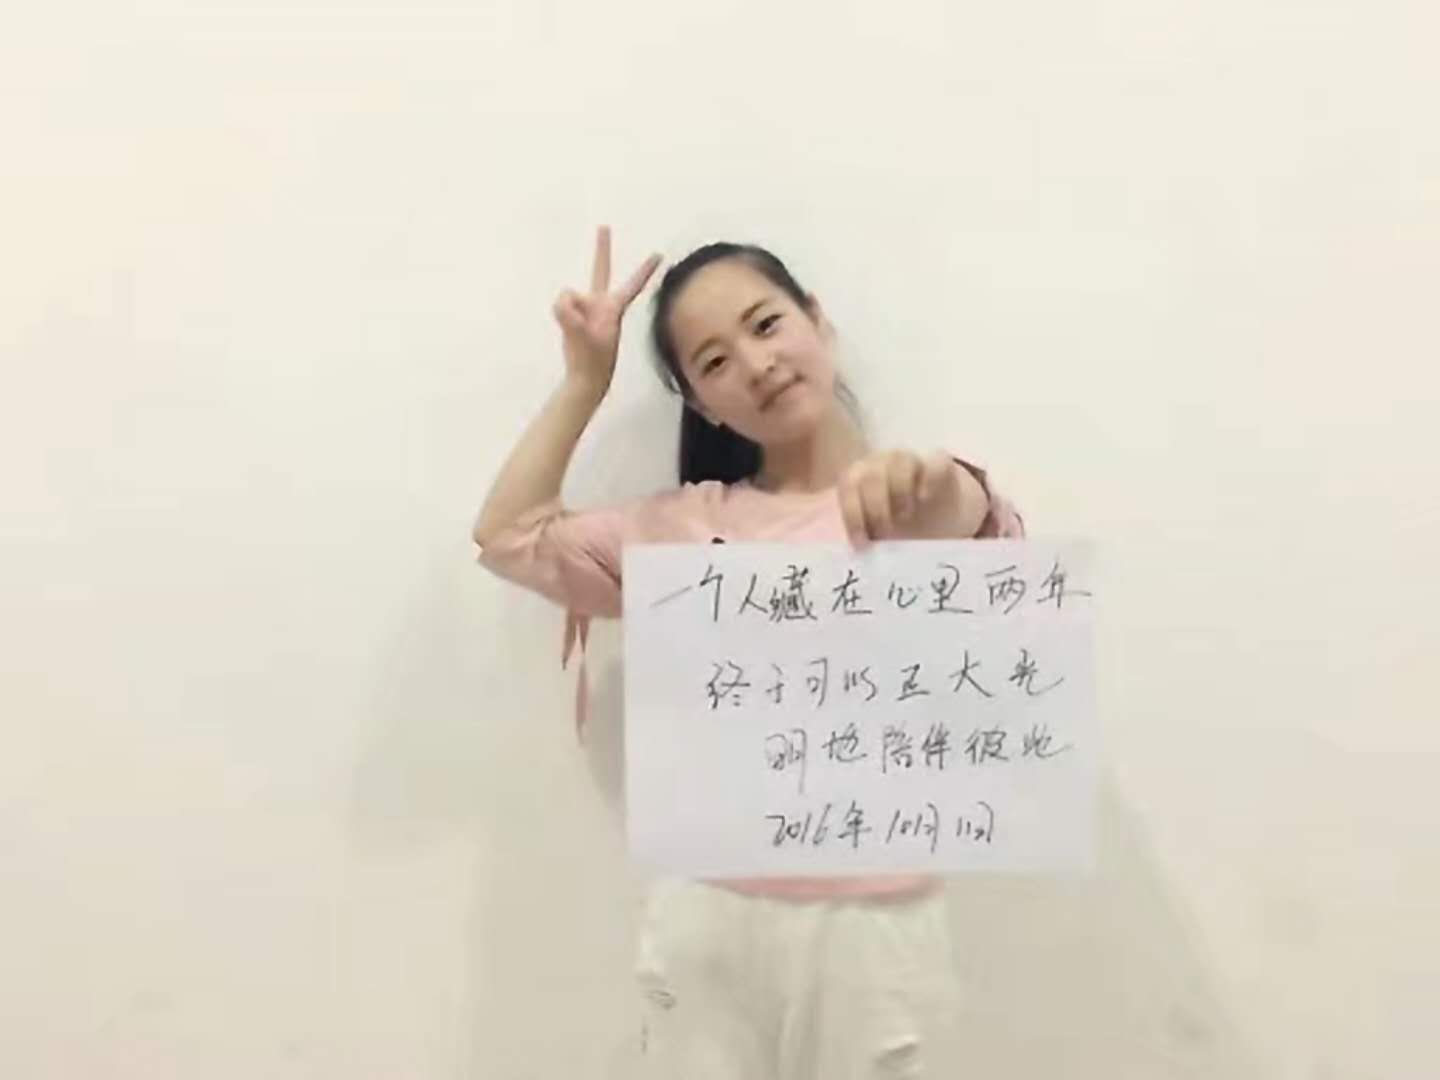 一个人藏在心里两年
终于可以正大光
明地陪伴彼此
2016年10月11日